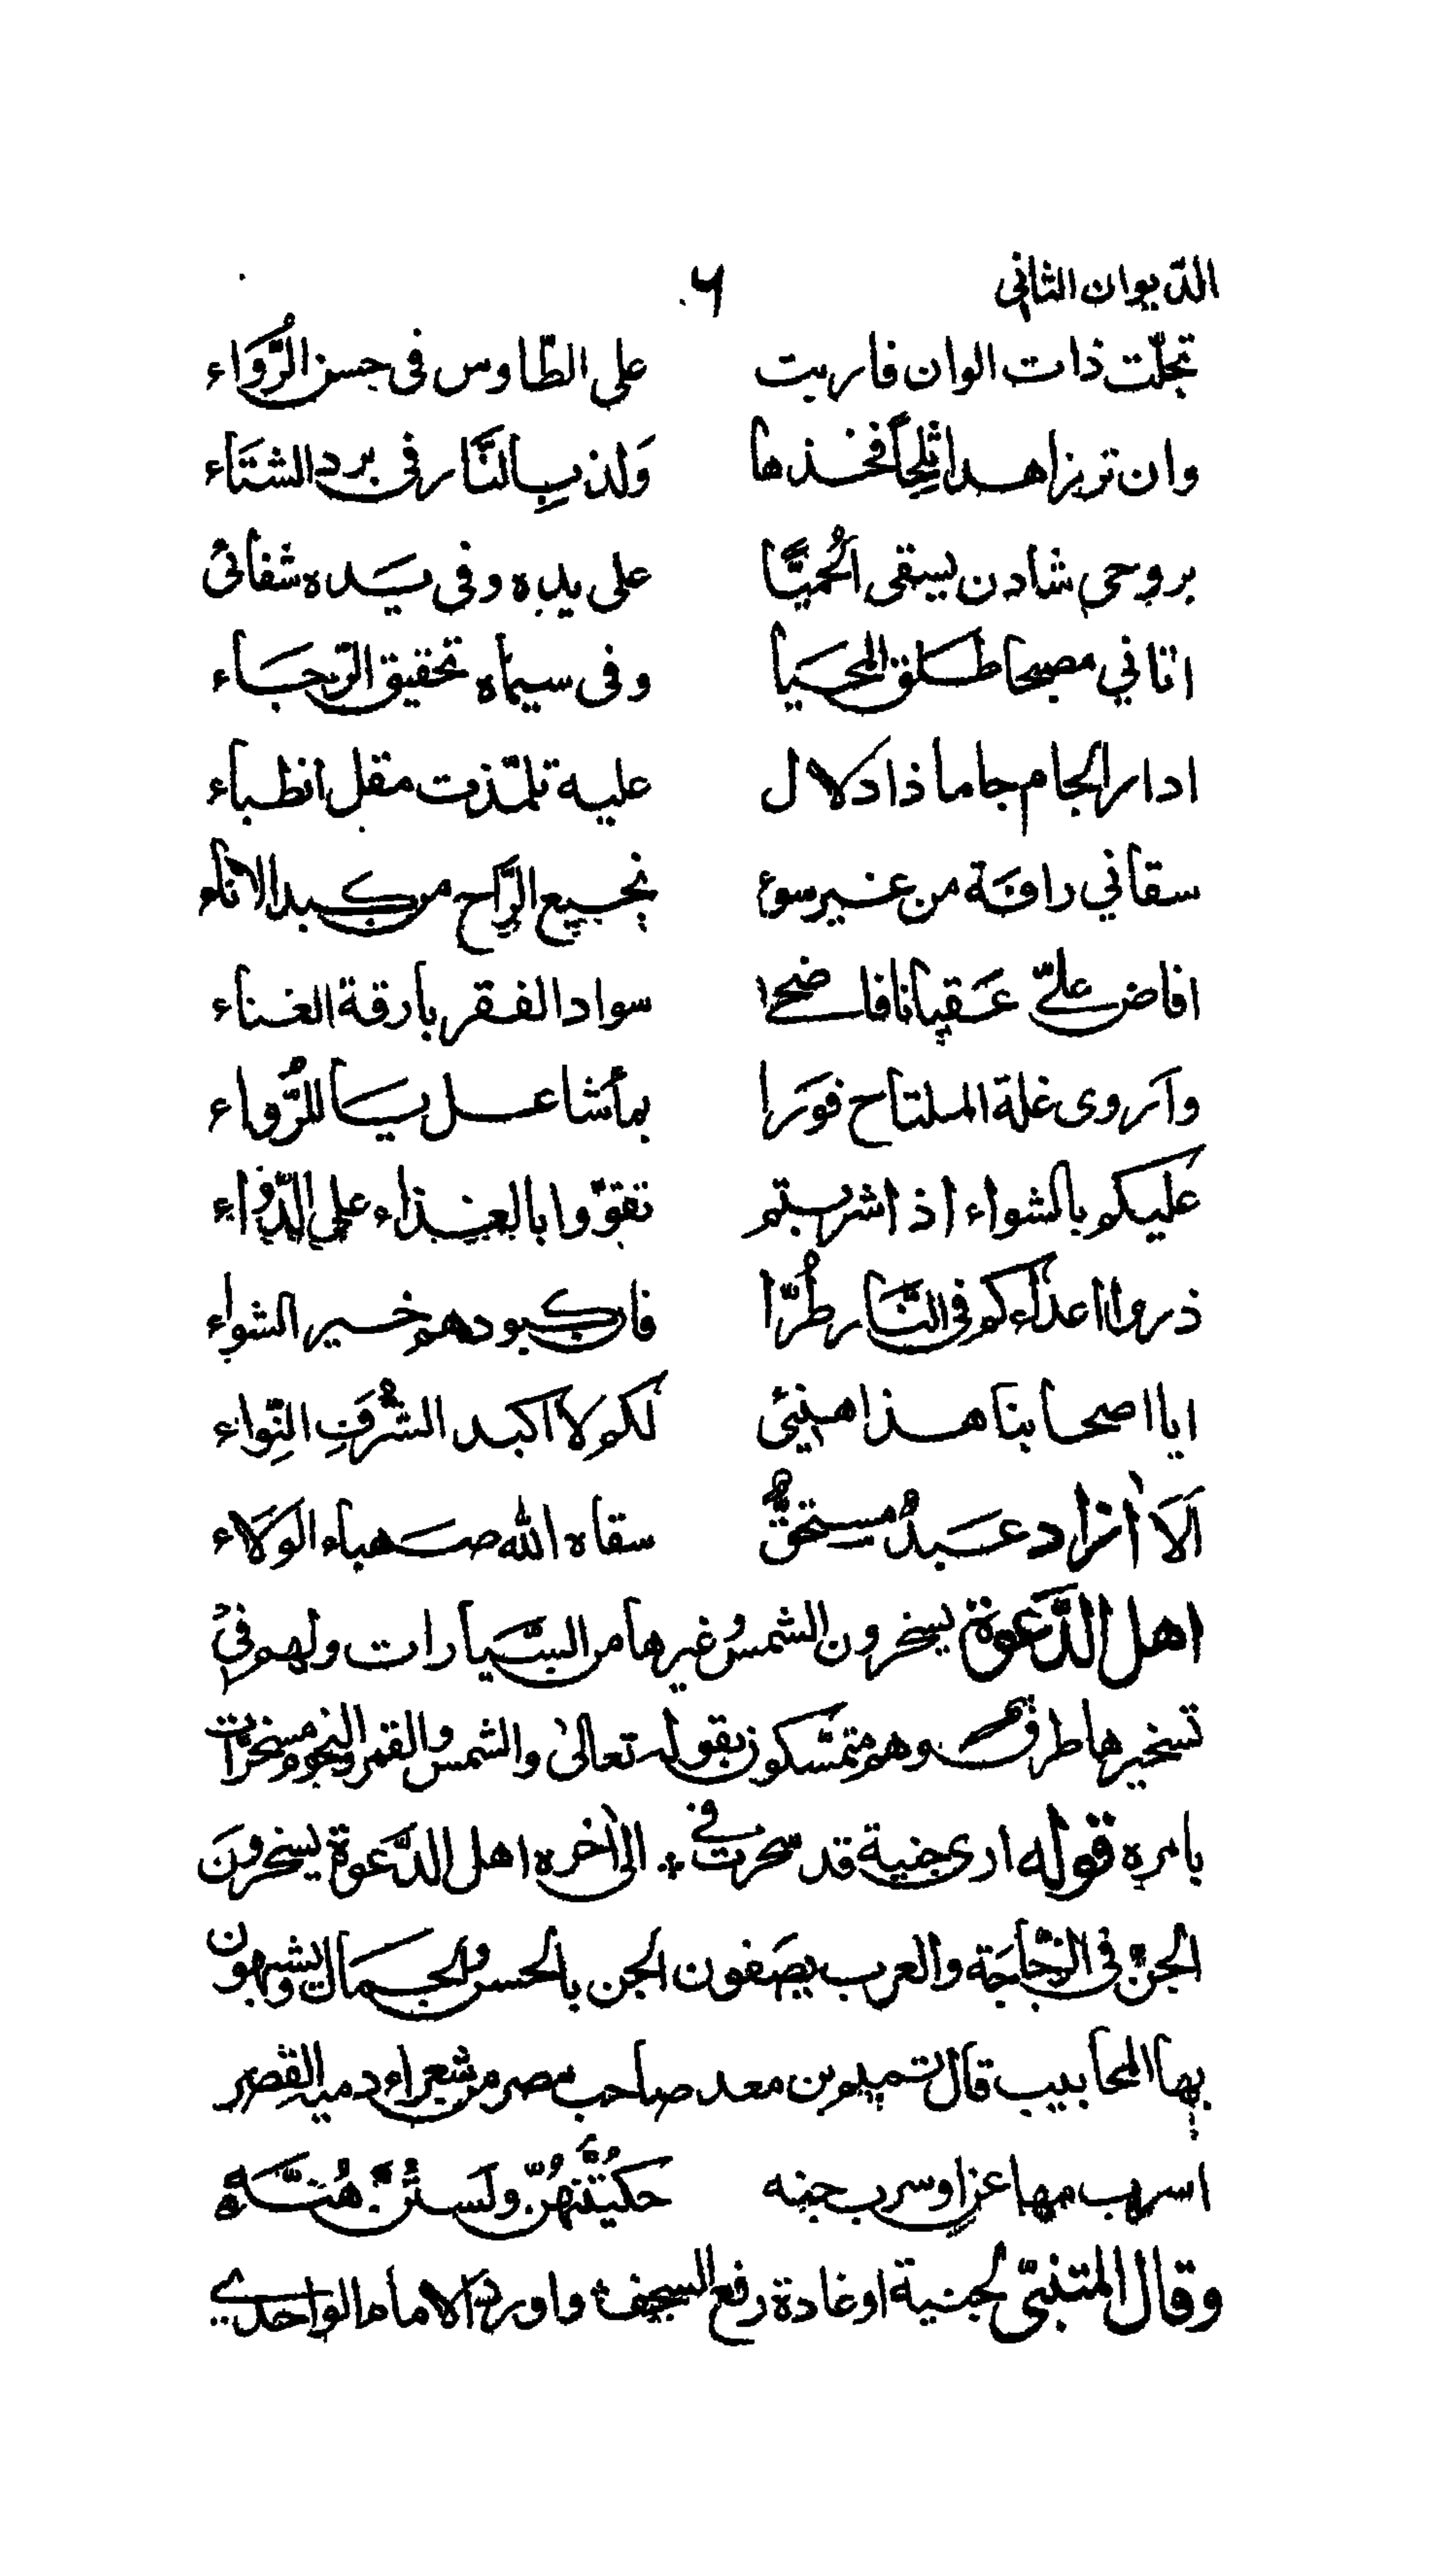 الدّيوان الثاني ٦
تجلّت ذات الوان فاربت على الطّاوس فى حسن الرُّوَاء
وان تربزاهدا ثلِجاً فخذها وَلذ بِالنَّار فى برد الشتَاء
بروحى شادن يسقى الحُميَّا على يده وفى يَده شفائى
اتاني مصبحا طلق المحَيا وفى سيماه تحقيق الرّجَاء
ادار الجام جاما ذا دلال عليه تلمّذت مقل الظباء
سقاني رافَة من غير سوء نجيع الرَّاح من كبد الاناء
افاض علىّ عَقيانا فاضحى سواد الفقر بارقة الغناء
وآروى غلة الملتاح فوَرا بمأ شاعل يَا للرُّواء
عليكم بالشواء اذا شربتم تقوّوا بالغذاء على الدّواء
ذروا اعداءكم فى النَّار طُرّا فاكبودهم خير الشواء
ايا اصحابنا هذا هنيئى لكم لا اكبد الشُّرفِ النِّواء
اَلَا اٰزاد عَبدُ مستحقٌّ سقاه الله صَهباء الوَلاء
اهل الدَّعوة يسخرون الشمس وغيرها من السَّيارات ولهم فى
تسخيرها طرق وهم متمسّكون بقوله تعالىٰ والشمس والقمر والنجوم مسخرّات
بامره قوله ارى جنية قد سحرت فى ⁘ الى اٰخره اهل الدَّعوة يسخرونَ
الجنّ فى الزّجاجَة والعرب يصَفون الجن بالحسن والجمال ويشبهون
بها المحابيب قال تميم بن معد صاحب مصر من شعراء دمية القصر
اسرب مها عزا وسرب جنه حكيُتنهُنّ ولَستُنَّ هُنَّهْ
وقال المتنبّى لجنية او غادة رفع السجف واورد الامام الواحدي